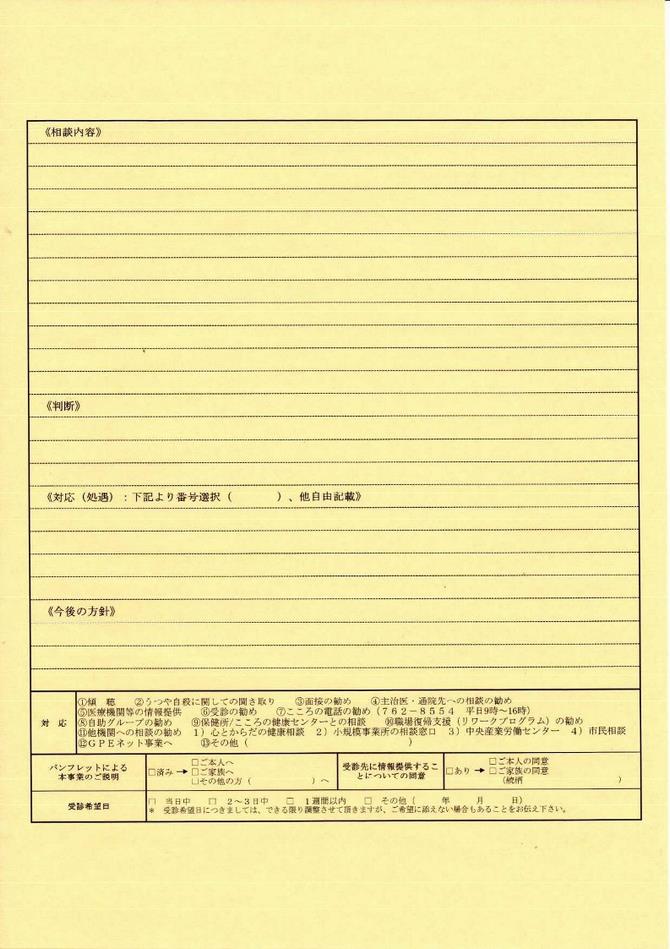 《相談内容》
《判断》
《対応（処遇）：下記より番号選択（　　　）、他自由記載》
《今後の方針》
対　応
①傾　聴　②うつや自殺に関しての聞き取り　③面接の勧め　④主治医・通院先への相談の勧め
⑤医療機関等の情報提供　⑥受診の勧め　⑦こころの電話の勧め（７６２－８５５４　平日9時～16時）
⑧自助グループの勧め　⑨保健所/こころの健康センターとの相談　⑩職場復帰支援（リワークプログラム）の勧め
⑪他機関への相談の勧め　1）心とからだの健康相談　2）小規模事業所の相談窓口　3）中央産業労働センター　4）市民相談
⑫ＧＰＥネット事業へ　⑬その他（　　　　　　　　　　　　）
パンフレットによる
本事業のご説明
□済み → □ご本人へ
□ご家族へ
□その他の方（　　　　　　）へ
受診先に情報提供するこ
とについての同意
□あり → □ご本人の同意
□ご家族の同意
（続柄　　　　　　　　　）
受診希望日
□　当日中　□　2～3日中　□　１週間以内　□　その他（　　年　　月　　日）
＊　受診希望日につきましては、できる限り調整させて頂きますが、ご希望に添えない場合もあることをお伝え下さい。